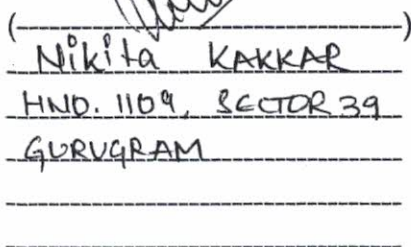 Nikita KAKKAR
HNO. 1109, SECTOR 39
GURUGRAM